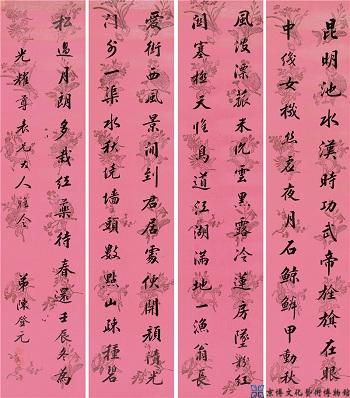 昆明池水漢時功武帝旌旗在眼
中織女機絲虛夜月石鯨鱗甲動秋
風波漂菰米沉雲黑露冷蓮房墜粉紅
關塞極天惟鳥道江湖滿地一漁翁長
愛街西風景閒到君居處開顏清光
門外一渠水秋墻頭數點山疎種碧
松邊月朗多栽紅藥待春還壬辰冬為
光耀尊表兄大人雅令 弟陳登元
京博文化藝術博物館